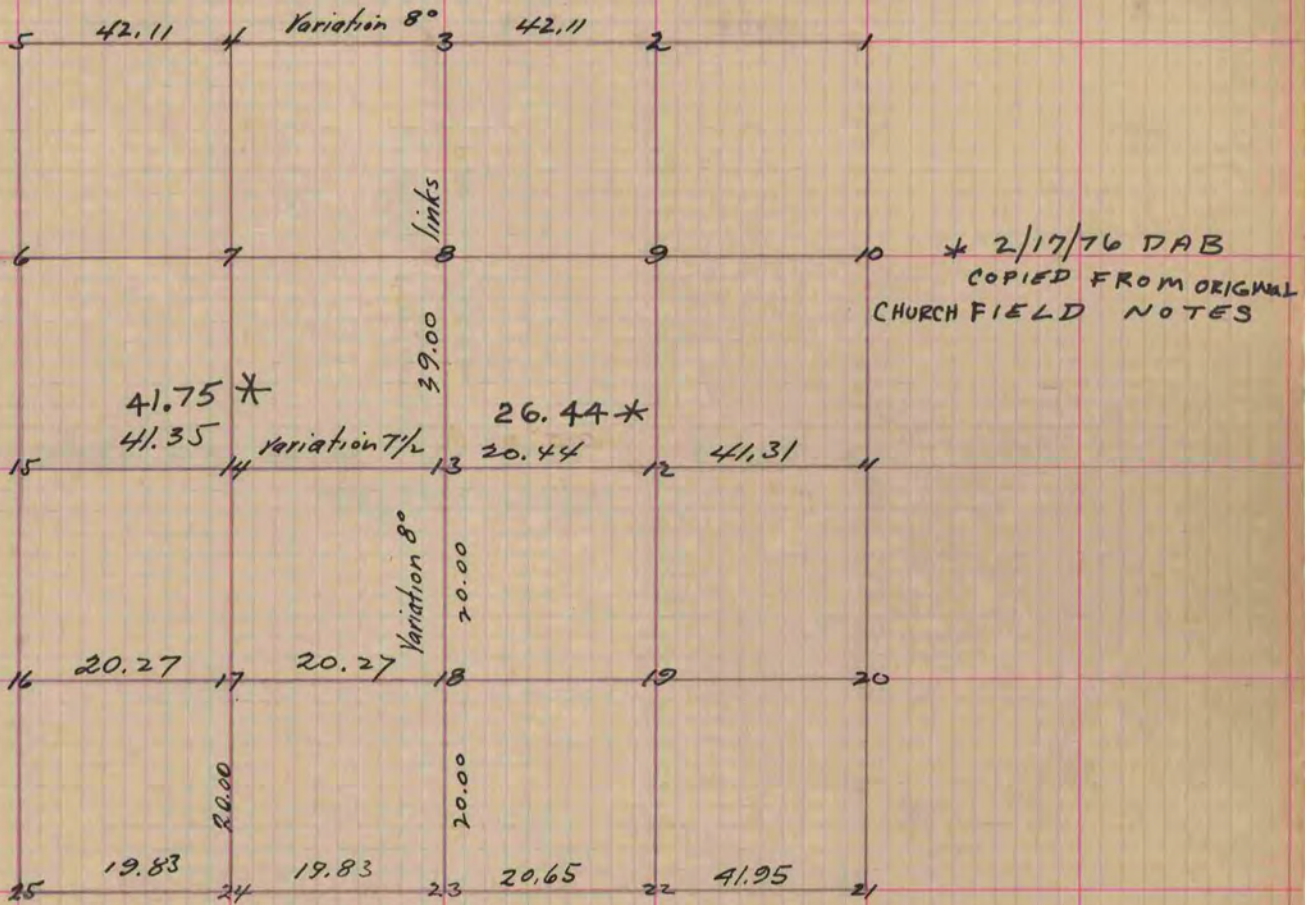 42.11 Variation 8° 42.11
5 4 3 2 1
links
6 7 8 9 10
* 2/17/76 DAB
COPIED FROM ORIGINAL
CHURCH FIELD NOTES
39.00
41.75 * 26.44 *
41.35 Variation 7½ 20.44 41.31
15 14 13 12 11
Variation 8° 20.00
20.27 20.27
16 17 18 19 20
20.00 20.00
19.83 19.83 20.65 41.95
25 24 23 22 21